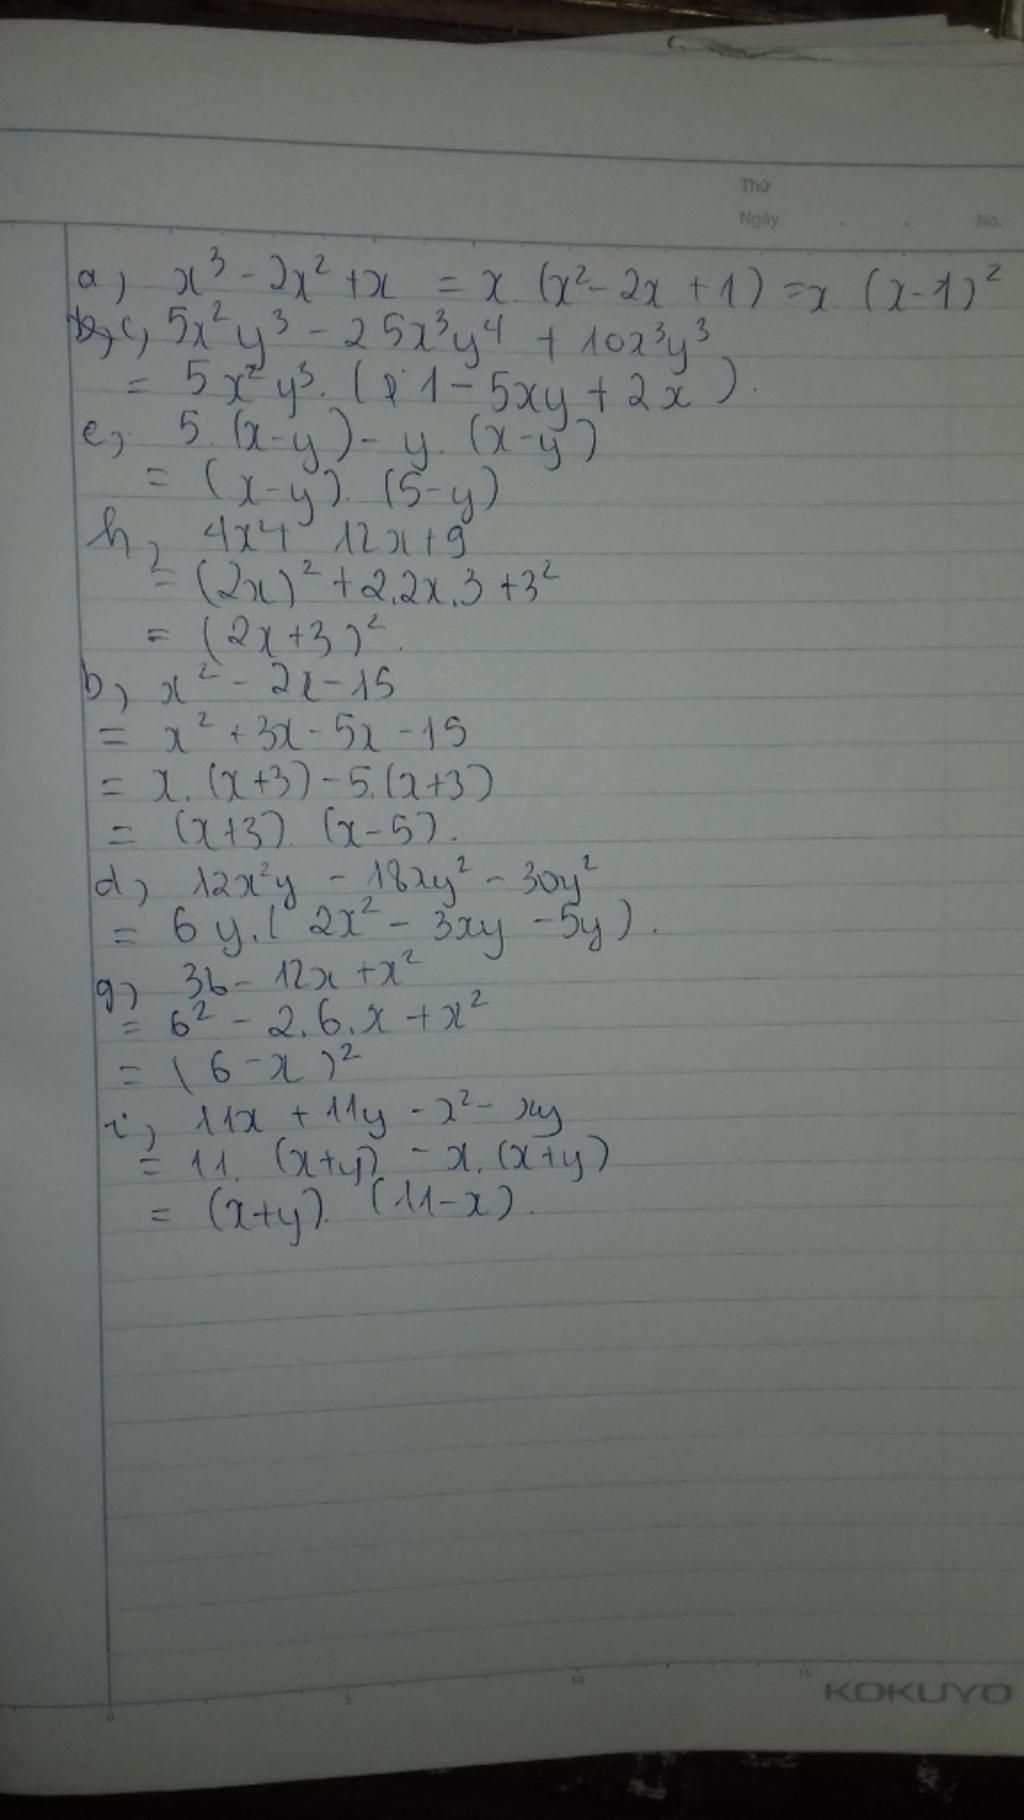 Thứ
Ngày . . No.
a) x³ - 2x² + x = x (x² - 2x + 1) = x (x-1)²
c) 5x²y³ - 25x³y⁴ + 10x³y³
= 5x²y³. (1 - 5xy + 2x).
e) 5.(x-y) - y.(x-y)
= (x-y). (5-y)
h) 4x⁴ 12x+9
= (2x)² + 2.2x.3 + 3²
= (2x+3)².
b) x² - 2x - 15
= x² + 3x - 5x - 15
= x.(x+3) - 5.(x+3)
= (x+3) (x-5).
d) 12x²y - 18xy² - 30y²
= 6y.(2x² - 3xy - 5y).
g) 36 - 12x + x²
= 6² - 2.6.x + x²
= (6-x)²
i) 11x + 11y - x² - xy
= 11. (x+y) - x.(x+y)
= (x+y). (11-x).
0 5 10 15
KOKUYO